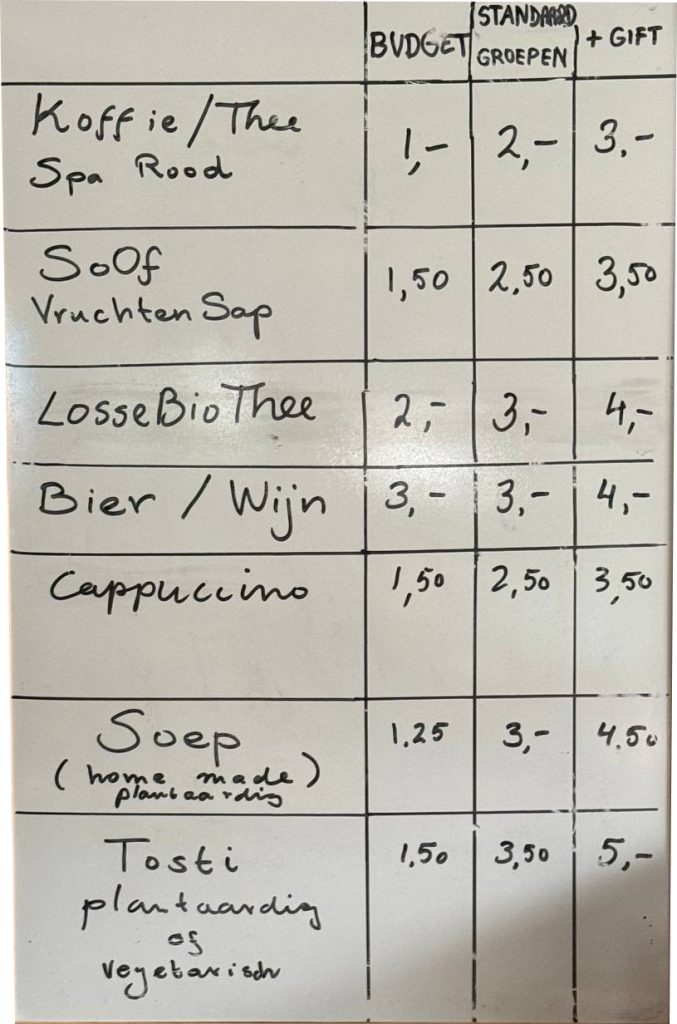 BUDGET STANDAARD GROEPEN + GIFT
Koffie/Thee 1,- 2,- 3.-
Spa Rood
SoOf 1,50 2,50 3,50
VruchtenSap
LosseBioThee 2,- 3,- 4,-
Bier / Wijn 3,- 3,- 4,-
Cappuccino 1,50 2,50 3,50
Soep 1.25 3,- 4.50
(home made)
plantaardig
Tosti 1,50 3,50 5,-
plantaardig
of
vegetarisch